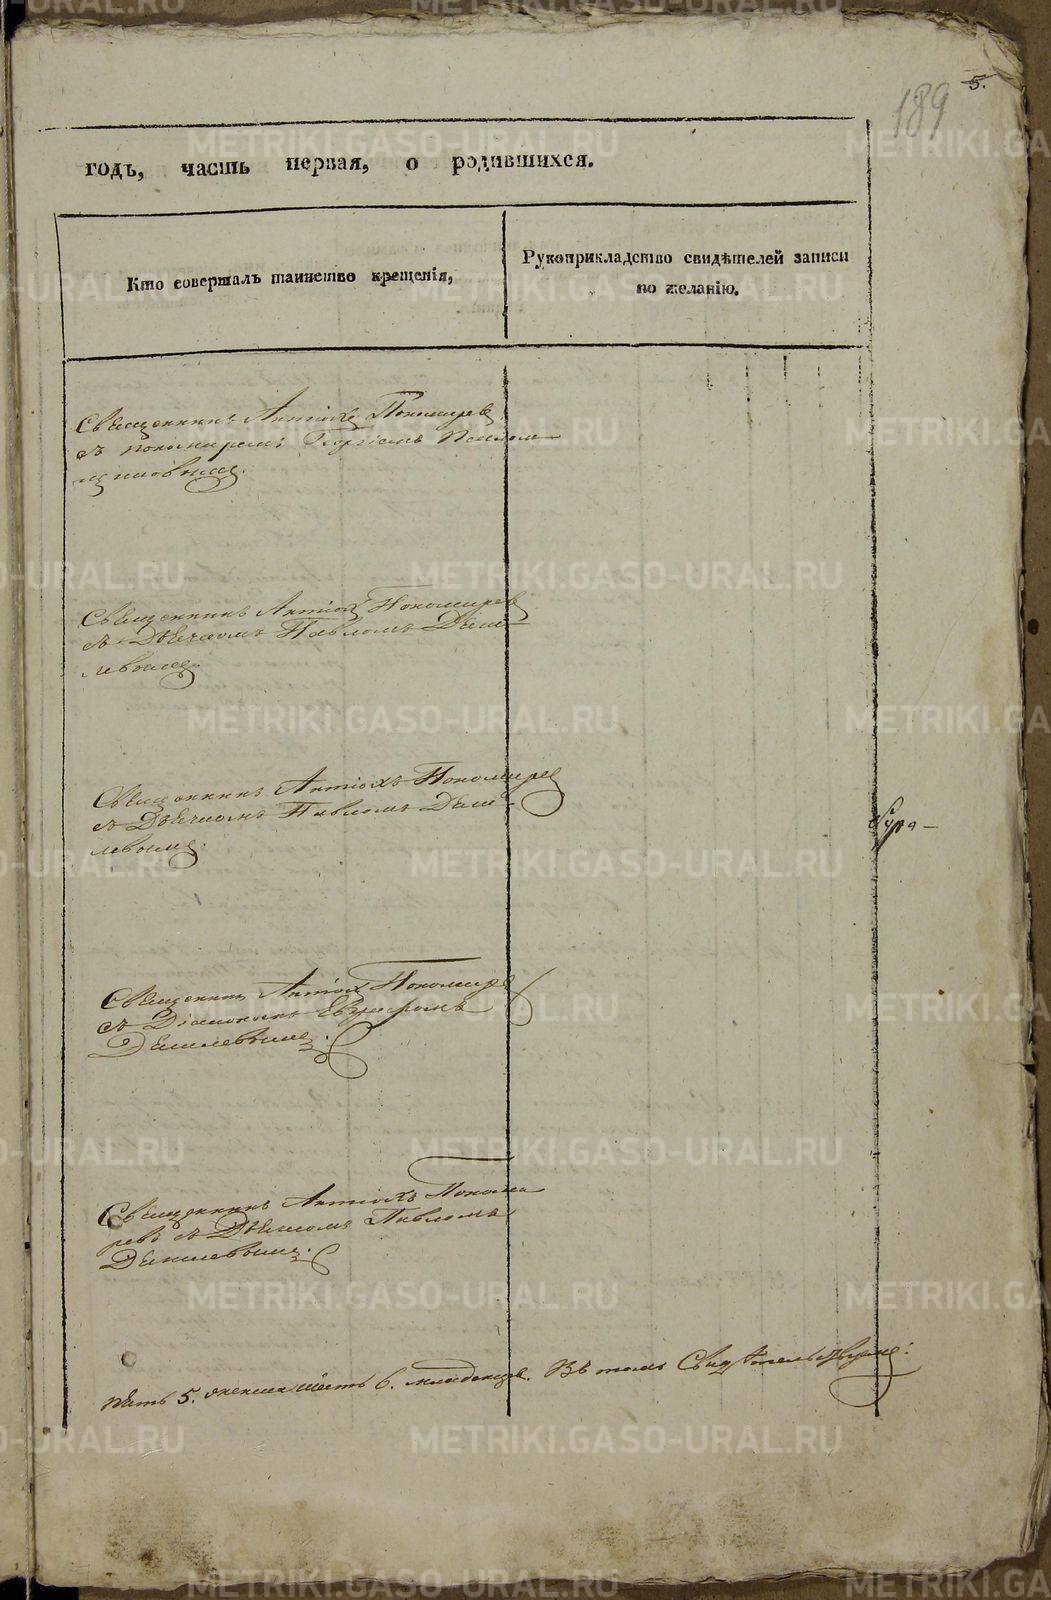 5.
189
годъ, часть первая, о родившихся.
Кто совершалъ таинство крещенія,
Рукоприкладство свидѣтелей записи
по желанію.
Священникъ Антіохъ Пономарев
съ пономаремъ Георгіемъ
Священникъ Антіох Пономарев
съ Дьячкомъ Павломъ Дани-
левымъ.
Священникъ Антіохъ Пономарев
съ Дьячкомъ Павломъ Дани-
левымъ.
Священникъ Антіох Пономарев
съ Діакономъ Евграфомъ
Данилевымъ.
Священникъ Антіохъ Понома
ревъ съ Дьячкомъ Павломъ
Данилевымъ.
пять 5. женска шесть 6. младенцев. Въ томъ Свидѣтельствуемъ:
METRIKI.GASO-URAL.RU